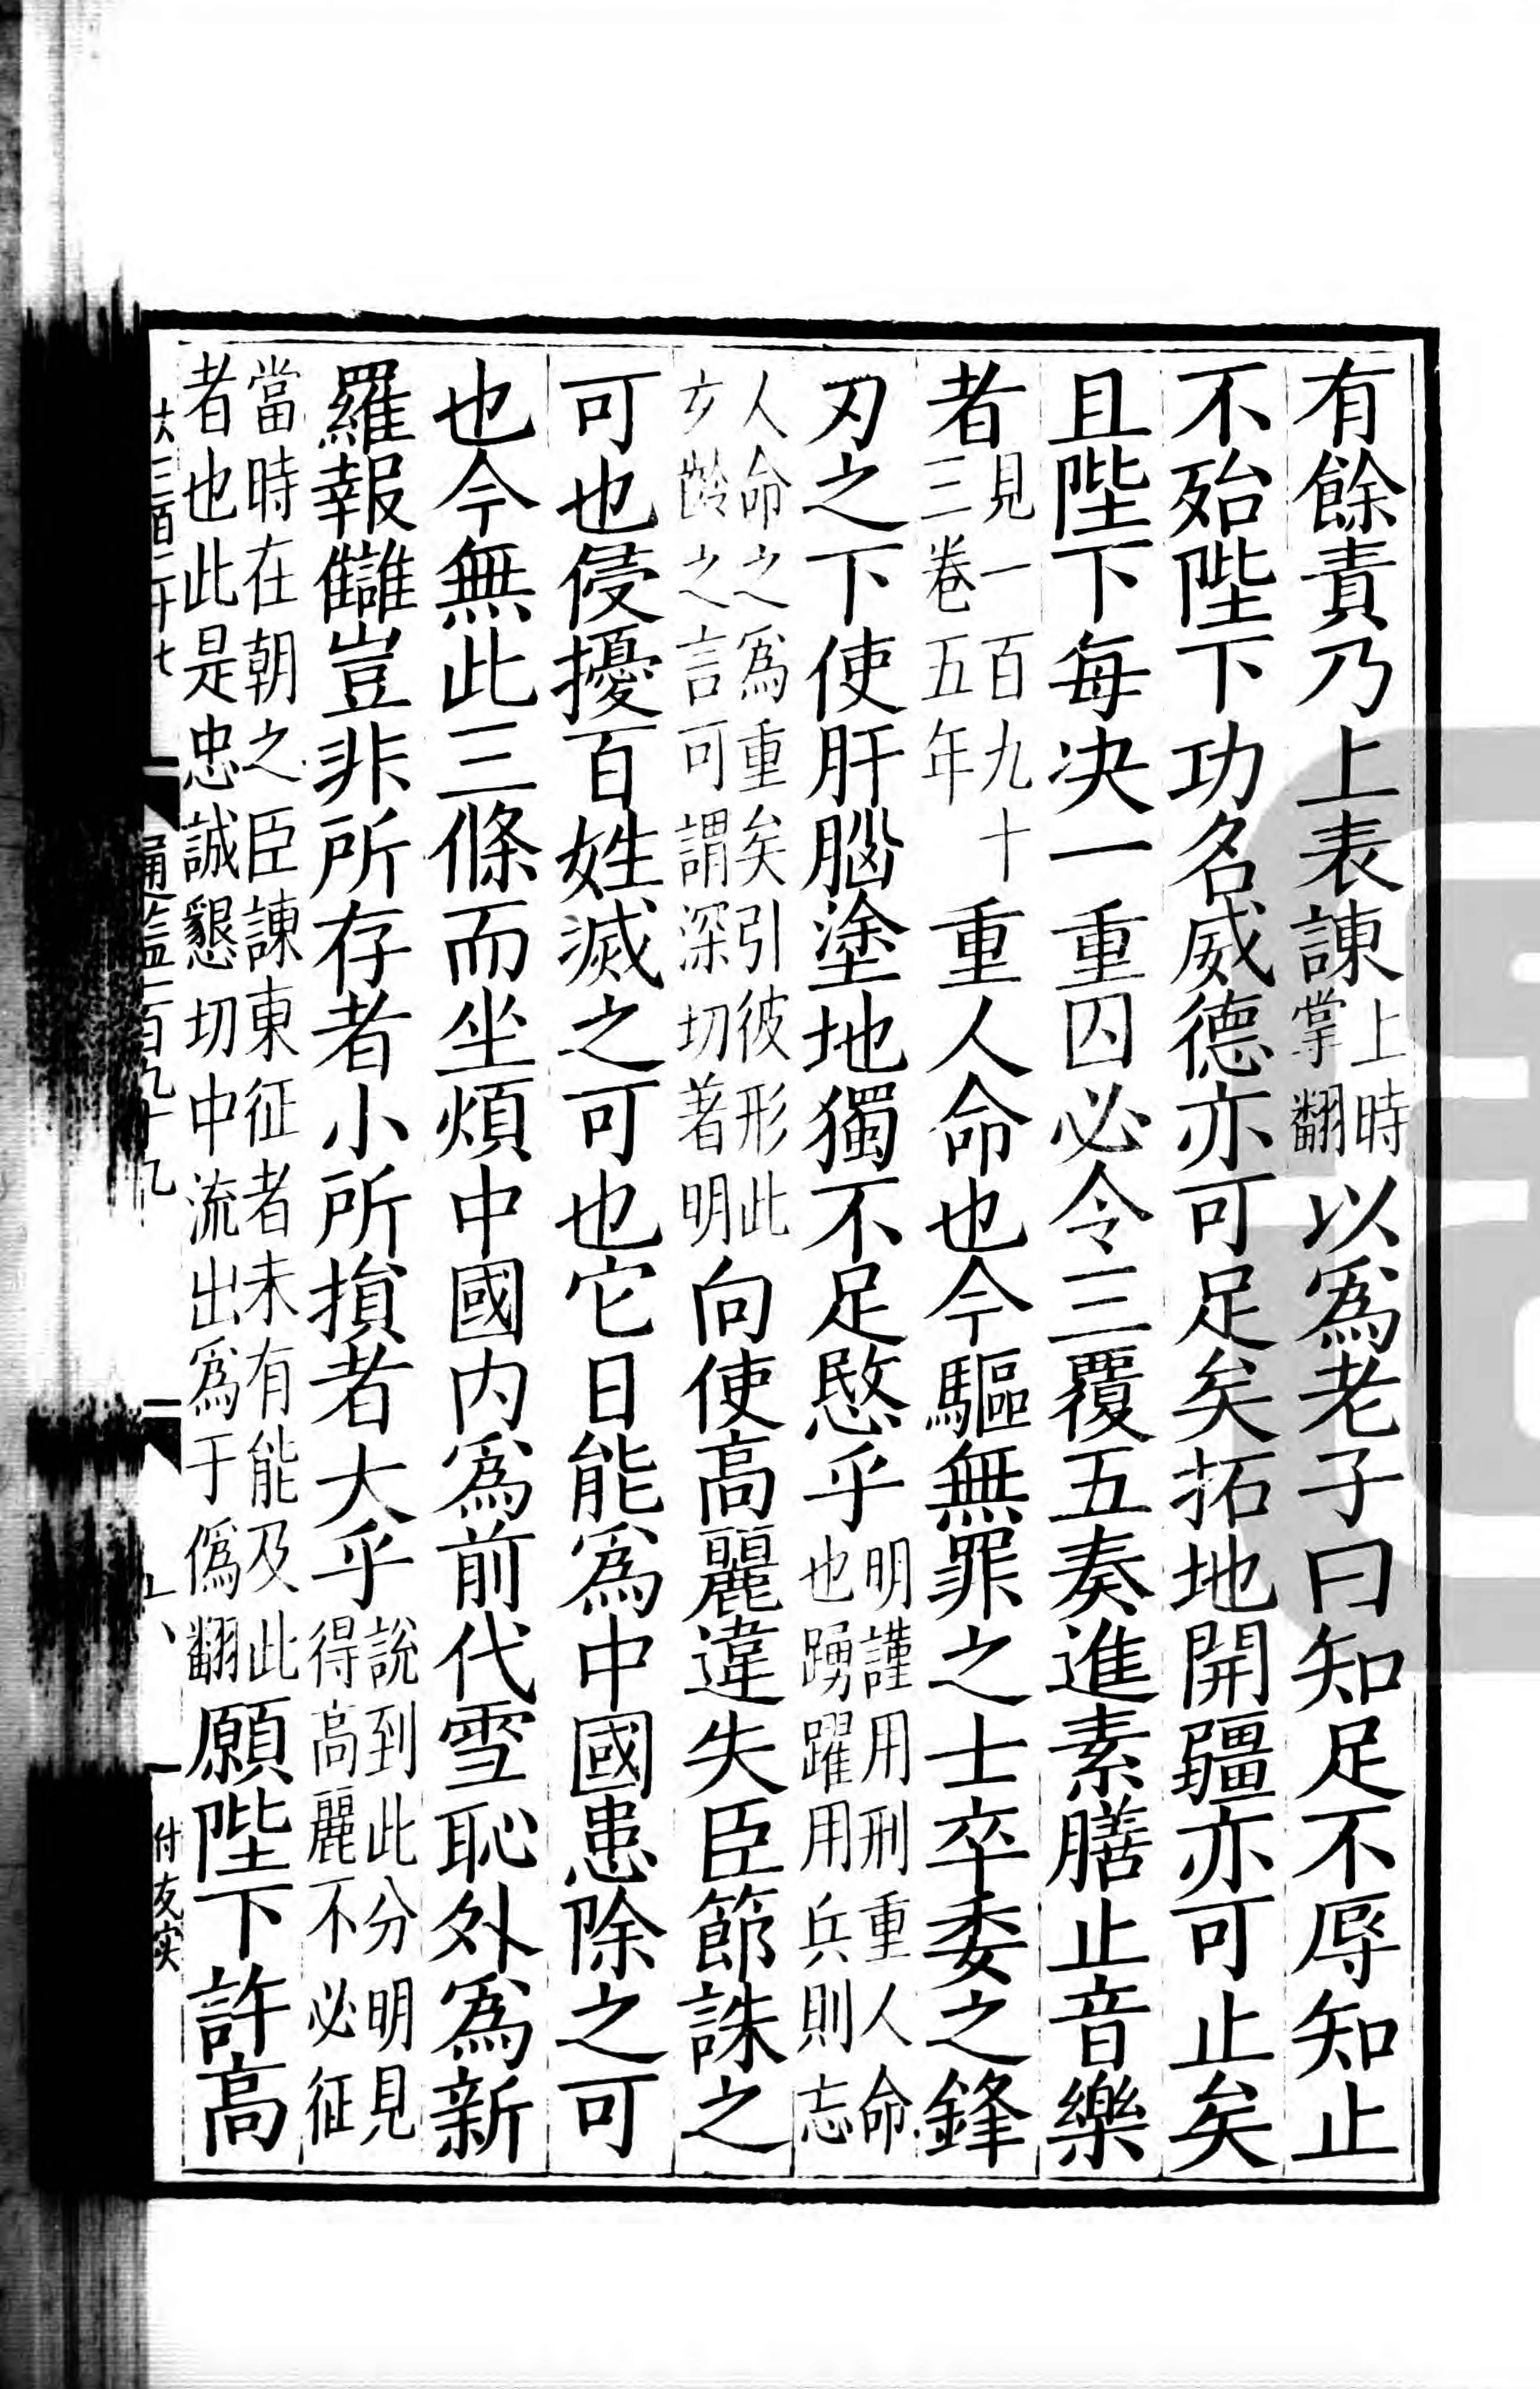 有餘責乃上表諫上時掌翻以爲老子曰知足不辱知止
不殆陛下功名威德亦可足矣拓地開疆亦可止矣
且陛下每决一重囚必令三覆五奏進素膳止音樂
者見一百九十三卷五年重人命也今驅無罪之士卒委之鋒
刃之下使肝腦塗地獨不足愍乎明謹用刑重人命也踴躍用兵則忘
人命之爲重矣引彼形此玄齡之言可謂深切著明向使高麗違失臣節誅之
可也侵擾百姓滅之可也它日能爲中國患除之可
也今無此三條而坐煩中國内爲前代雪恥外爲新
羅報讎豈非所存者小所損者大乎說到此分明見得高麗不必征
當時在朝之臣諫東征者未有能及此者也此是忠誠懇切中流出爲于僞翻願陛下許高
通監一百九十九
付友实